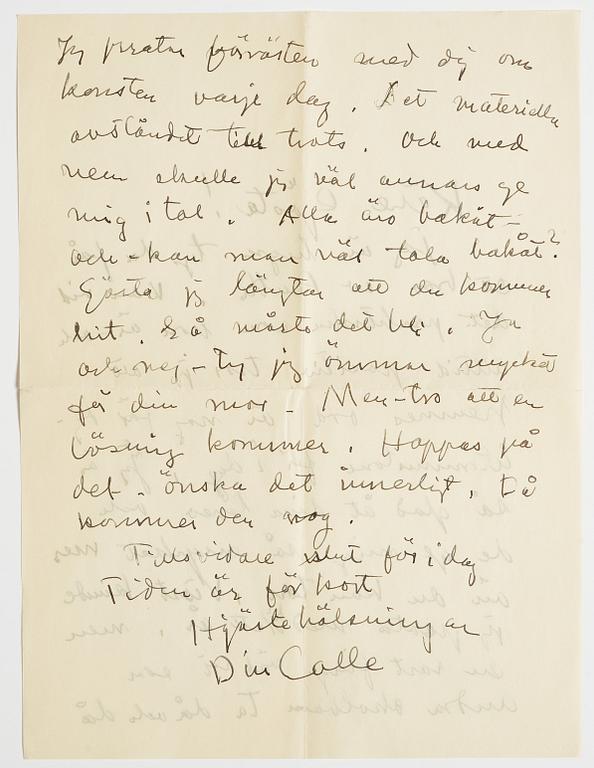 Jag pratar förvästen med dig om
konsten varje dag. Det materiella
avståndet till trots. Och med
vem skulle jag väl annars ge
mig i tal. Alla äro bakåt -
och - kan man väl tala bakåt?
Gösta jag längtar att du kommer
hit. Så måste det bli. Ja
och nej - ty jag ömmar mycket
för din mor - Men - tro att en
lösning kommer. Hoppas på
det - önska det innerligt, så
kommer den nog.
Tillsvidare slut för idag
Tiden är för kort
Hjärtehälsningar
Din Calle